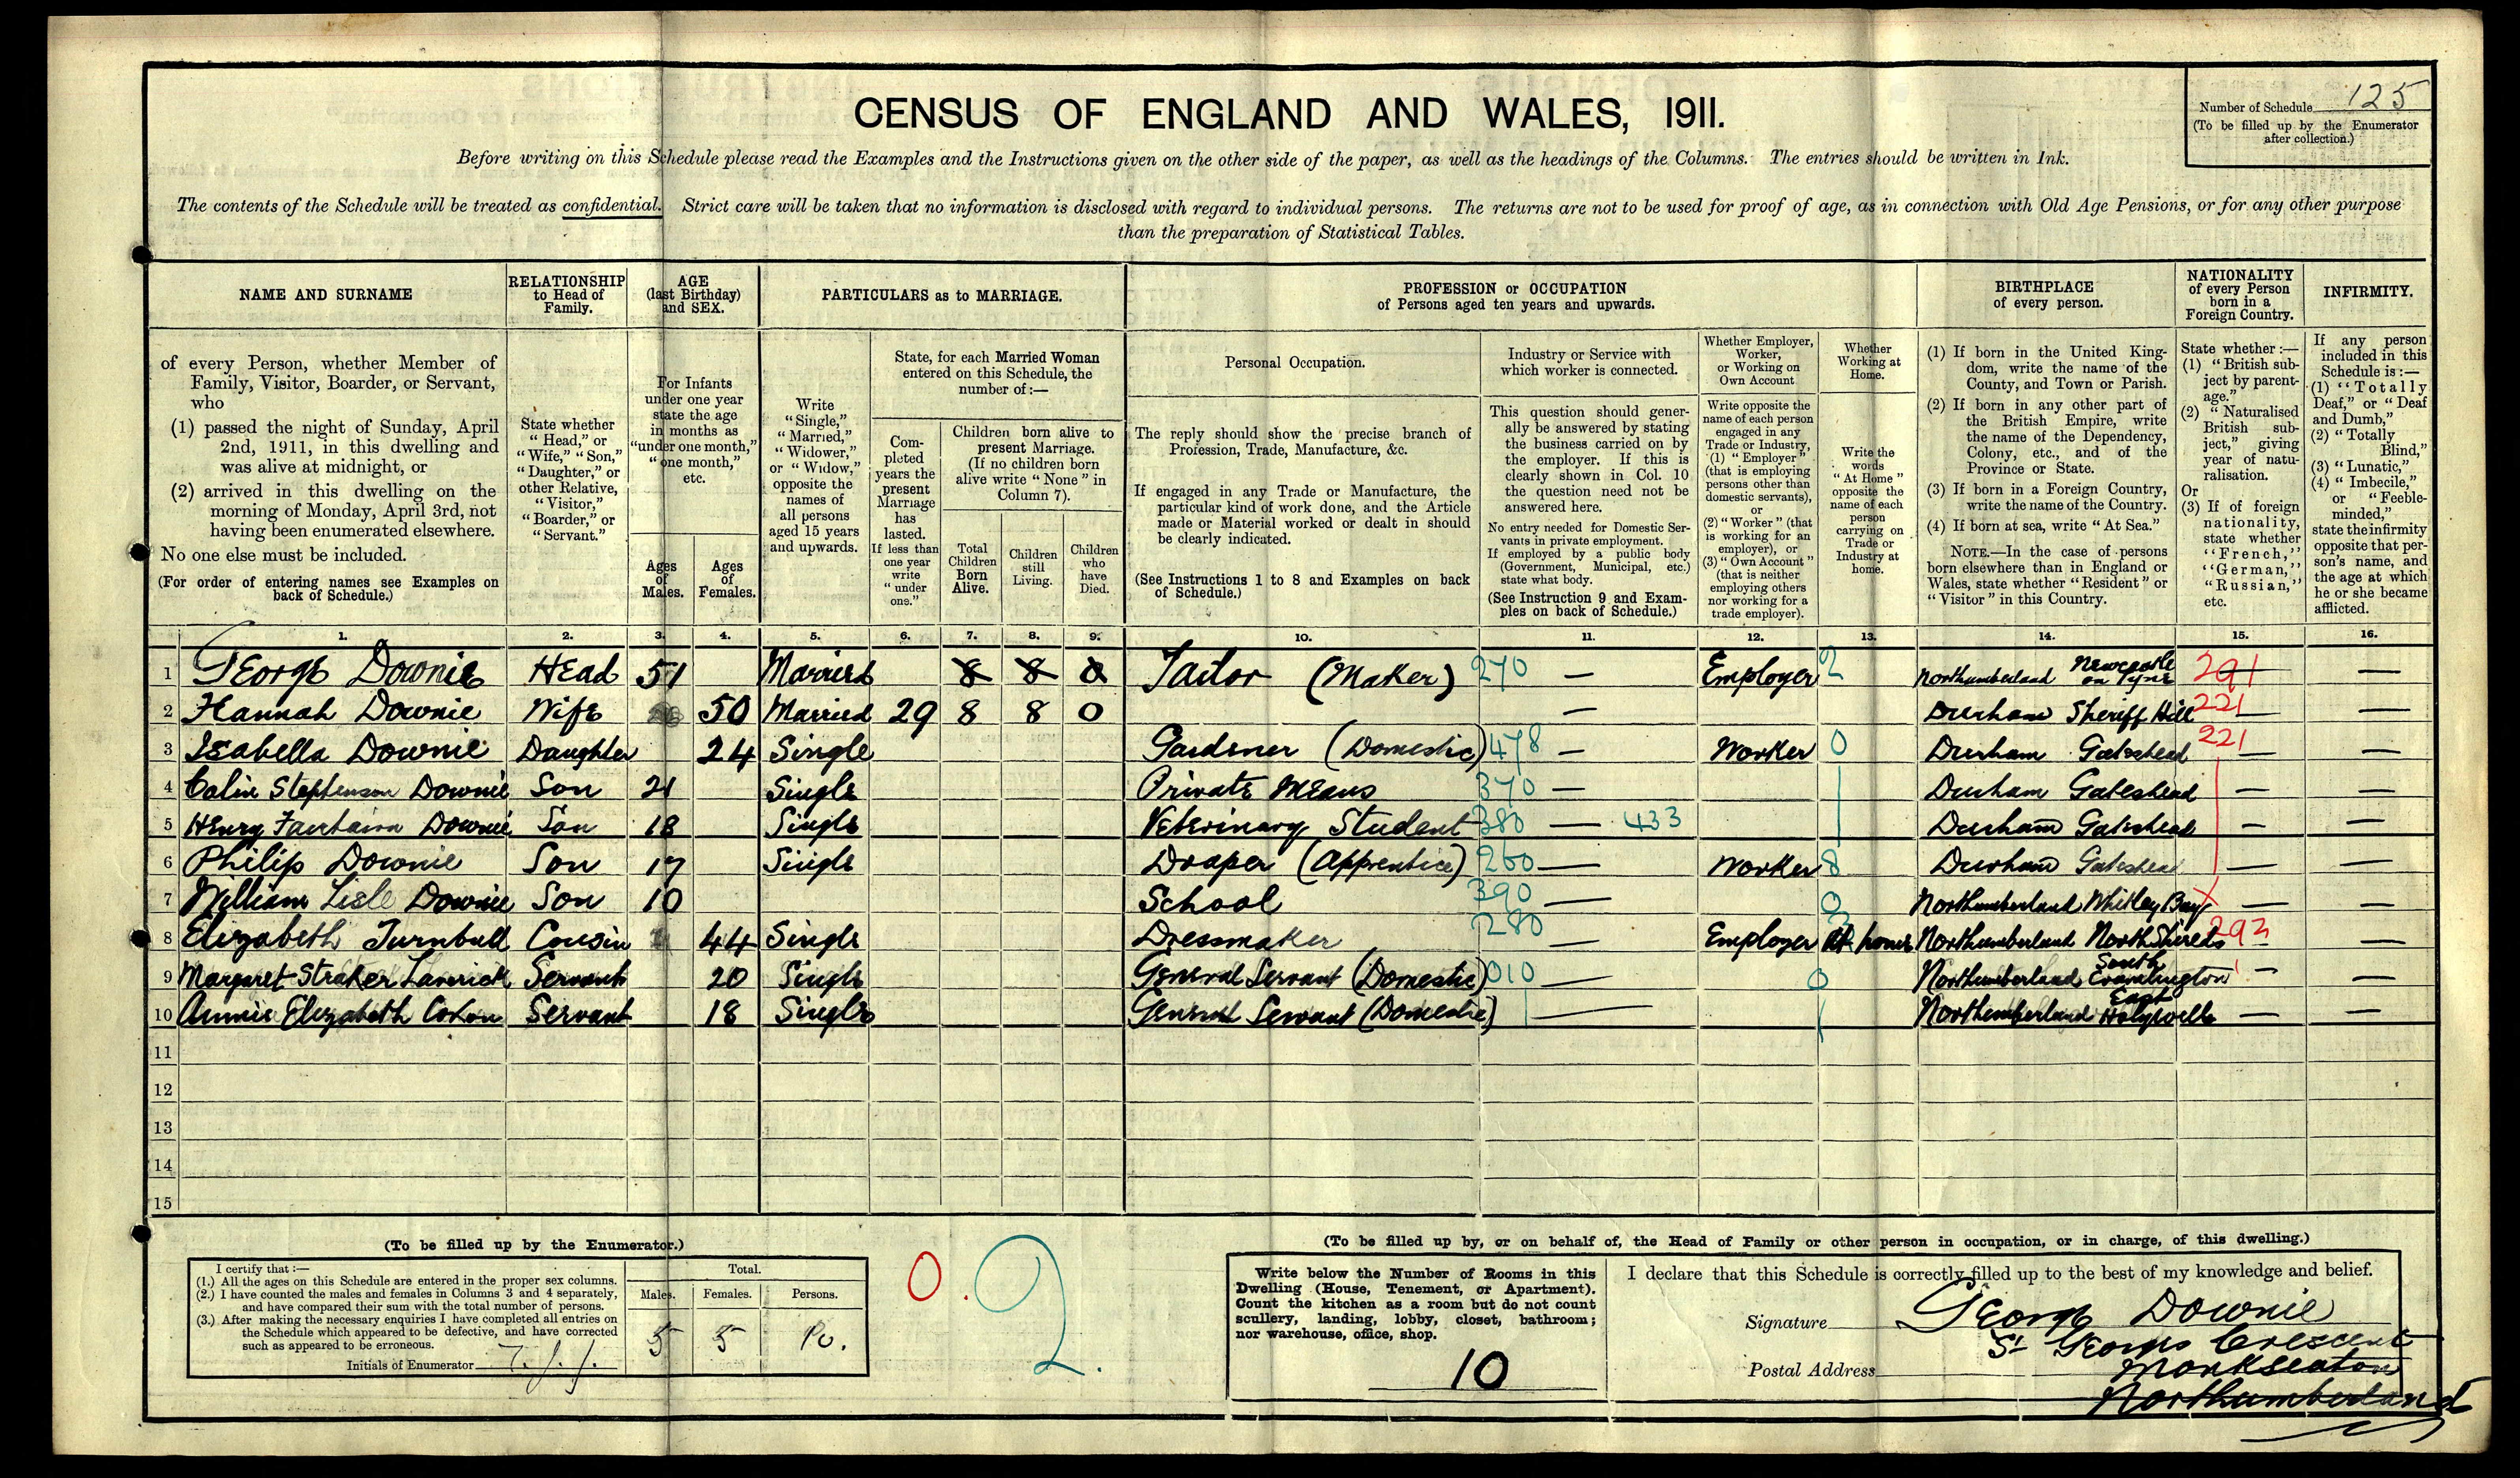 CENSUS OF ENGLAND AND WALES, 1911.
Number of Schedule 125
(To be filled up by the Enumerator
after collection.)
Before writing on this Schedule please read the Examples and the Instructions given on the other side of the paper, as well as the headings of the Columns. The entries should be written in Ink.
The contents of the Schedule will be treated as confidential. Strict care will be taken that no information is disclosed with regard to individual persons. The returns are not to be used for proof of age, as in connection with Old Age Pensions, or for any other purpose
than the preparation of Statistical Tables.
NAME AND SURNAME
RELATIONSHIP
to Head of
Family.
AGE
(last Birthday)
and SEX.
PARTICULARS as to MARRIAGE.
PROFESSION or OCCUPATION
of Persons aged ten years and upwards.
BIRTHPLACE
of every person.
NATIONALITY
of every Person
born in a
Foreign Country.
INFIRMITY.
of every Person, whether Member of
Family, Visitor, Boarder, or Servant,
who
(1) passed the night of Sunday, April
2nd, 1911, in this dwelling and
was alive at midnight, or
(2) arrived in this dwelling on the
morning of Monday, April 3rd, not
having been enumerated elsewhere.
No one else must be included.
(For order of entering names see Examples on
back of Schedule.)
State whether
"Head," or
"Wife," "Son,"
"Daughter," or
other Relative,
"Visitor,"
"Boarder," or
"Servant."
For Infants
under one year
state the age
in months as
"under one month,"
"one month,"
etc.
Ages
of
Males.
Ages
of
Females.
Write
"Single,"
"Married,"
"Widower,"
or "Widow,"
opposite the
names of
all persons
aged 15 years
and upwards.
State, for each Married Woman
entered on this Schedule, the
number of:—
Completed
years the
present
Marriage
has
lasted.
If less than
one year
write
"under
one."
Children born alive to
present Marriage.
(If no children born
alive write "None" in
Column 7).
Total
Children
Born
Alive.
Children
still
Living.
Children
who
have
Died.
Personal Occupation.
The reply should show the precise branch of
Profession, Trade, Manufacture, &c.
If engaged in any Trade or Manufacture, the
particular kind of work done, and the Article
made or Material worked or dealt in should
be clearly indicated.
(See Instructions 1 to 8 and Examples on back
of Schedule.)
Industry or Service with
which worker is connected.
This question should gener-
ally be answered by stating
the business carried on by
the employer. If this is
clearly shown in Col. 10
the question need not be
answered here.
No entry needed for Domestic Ser-
vants in private employment.
If employed by a public body
(Government, Municipal, etc.)
state what body.
(See Instruction 9 and Exam-
ples on back of Schedule.)
Whether Employer,
Worker,
or Working on
Own Account
Write opposite the
name of each person
engaged in any
Trade or Industry,
(1) "Employer"
(that is employing
persons other than
domestic servants),
or
(2) "Worker" (that
is working for an
employer), or
(3) "Own Account"
(that is neither
employing others
nor working for a
trade employer).
Whether
Working at
Home.
Write the
words
"At Home"
opposite the
name of each
person
carrying on
Trade or
Industry at
home.
(1) If born in the United King-
dom, write the name of the
County, and Town or Parish.
(2) If born in any other part of
the British Empire, write
the name of the Dependency,
Colony, etc., and of the
Province or State.
(3) If born in a Foreign Country,
write the name of the Country.
(4) If born at sea, write "At Sea."
NOTE.—In the case of persons
born elsewhere than in England or
Wales, state whether "Resident" or
"Visitor" in this Country.
State whether :—
(1) "British sub-
ject by parent-
age."
(2) "Naturalised
British sub-
ject," giving
year of natu-
ralisation.
Or
(3) If of foreign
nationality,
state whether
"French,"
"German,"
"Russian,"
etc.
If any person
included in this
Schedule is:—
(1) "Totally
Deaf," or "Deaf
and Dumb,"
(2) "Totally
Blind,"
(3) "Lunatic,"
(4) "Imbecile,"
or "Feeble-
minded,"
state the infirmity
opposite that per-
son's name, and
the age at which
he or she became
afflicted.
1. 2. 3. 4. 5. 6. 7. 8. 9. 10. 11. 12. 13. 14. 15. 16.
1 George Downie Head 51 Married 8 8 0 Tailor (Maker) 270 — Employer 2 Northumberland Newcastle on Tyne 291 —
2 Hannah Downie Wife 50 Married 29 8 8 0 — Durham Sheriff Hill 221 — —
3 Isabella Downie Daughter 24 Single Gardener (Domestic) 478 — Worker 0 Durham Gateshead 221 — —
4 Colin Stephenson Downie Son 21 Single Private Means 370 — Durham Gateshead — —
5 Henry Fairbairn Downie Son 18 Single Veterinary Student 380 — 433 Durham Gateshead — —
6 Philip Downie Son 17 Single Draper (Apprentice) 260 — Worker 8 Durham Gateshead — —
7 William Lisle Downie Son 10 School 390 — 0 Northumberland Whitley Bay —
8 Elizabeth Turnbull Cousin 44 Single Dressmaker 280 — Employer 3 At home Northumberland North Shields 293 — —
9 Margaret Straker Laverick Servant 20 Single General Servant (Domestic) 010 — 0 Northumberland South Cramlington — —
10 Annie Elizabeth Servant 18 Single General Servant (Domestic) — Northumberland East Holywell — —
11
12
13
14
15
(To be filled up by the Enumerator.)
I certify that :—
(1.) All the ages on this Schedule are entered in the proper sex columns.
(2.) I have counted the males and females in Columns 3 and 4 separately,
and have compared their sum with the total number of persons.
(3.) After making the necessary enquiries I have completed all entries on
the Schedule which appeared to be defective, and have corrected
such as appeared to be erroneous.
Initials of Enumerator
Total.
Males. Females. Persons.
5 5 10.
0. 2.
(To be filled up by, or on behalf of, the Head of Family or other person in occupation, or in charge, of this dwelling.)
Write below the Number of Rooms in this
Dwelling (House, Tenement, or Apartment).
Count the kitchen as a room but do not count
scullery, landing, lobby, closet, bathroom;
nor warehouse, office, shop.
10
I declare that this Schedule is correctly filled up to the best of my knowledge and belief.
Signature George Downie
Postal Address St Georges Crescent
Monkseaton
Northumberland